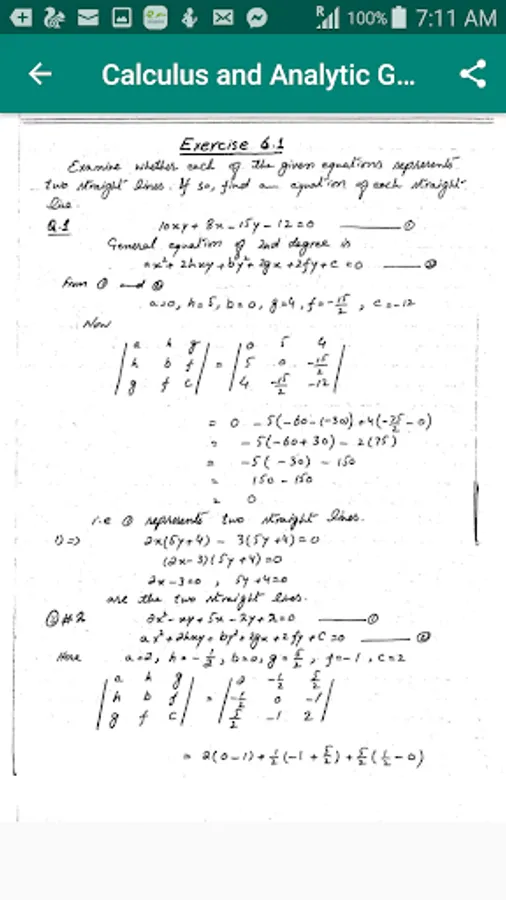 R 100% 7:11 AM
Calculus and Analytic G...
Exercise 6.1
Examine whether each of the given equations represents
two straight lines. If so, find an equation of each straight
line.
Q.1 10xy + 8x - 15y - 12 = 0 ——— ①
General equation of 2nd degree is
ax² + 2hxy + by² + 2gx + 2fy + c = 0 ——— ②
From ① and ②
a=0, h=5, b=0, g=4, f=-15/2, c=-12
Now
| a h g | = | 0 5 4 |
| h b f | | 5 0 -15/2 |
| g f c | | 4 -15/2 -12 |
= 0 - 5(-60-(-30)) + 4(-75/2 - 0)
= -5(-60+30) - 2(75)
= -5(-30) - 150
= 150 - 150
= 0
i.e ① represents two straight lines.
1) => 2x(5y+4) - 3(5y+4) = 0
(2x-3)(5y+4) = 0
2x-3=0 , 5y+4=0
are the two straight lines.
Q#2 2x² - xy + 5x - 2y + 2 = 0 ——— ①
ax² + 2hxy + by² + 2gx + 2fy + c = 0 ——— ②
Here a=2, h=-1/2, b=0, g=5/2, f=-1, c=2
| a h g | = | 2 -1/2 5/2 |
| h b f | | -1/2 0 -1 |
| g f c | | 5/2 -1 2 |
= 2(0-1) + 1/2(-1 + 5/2) + 5/2(1/2 - 0)